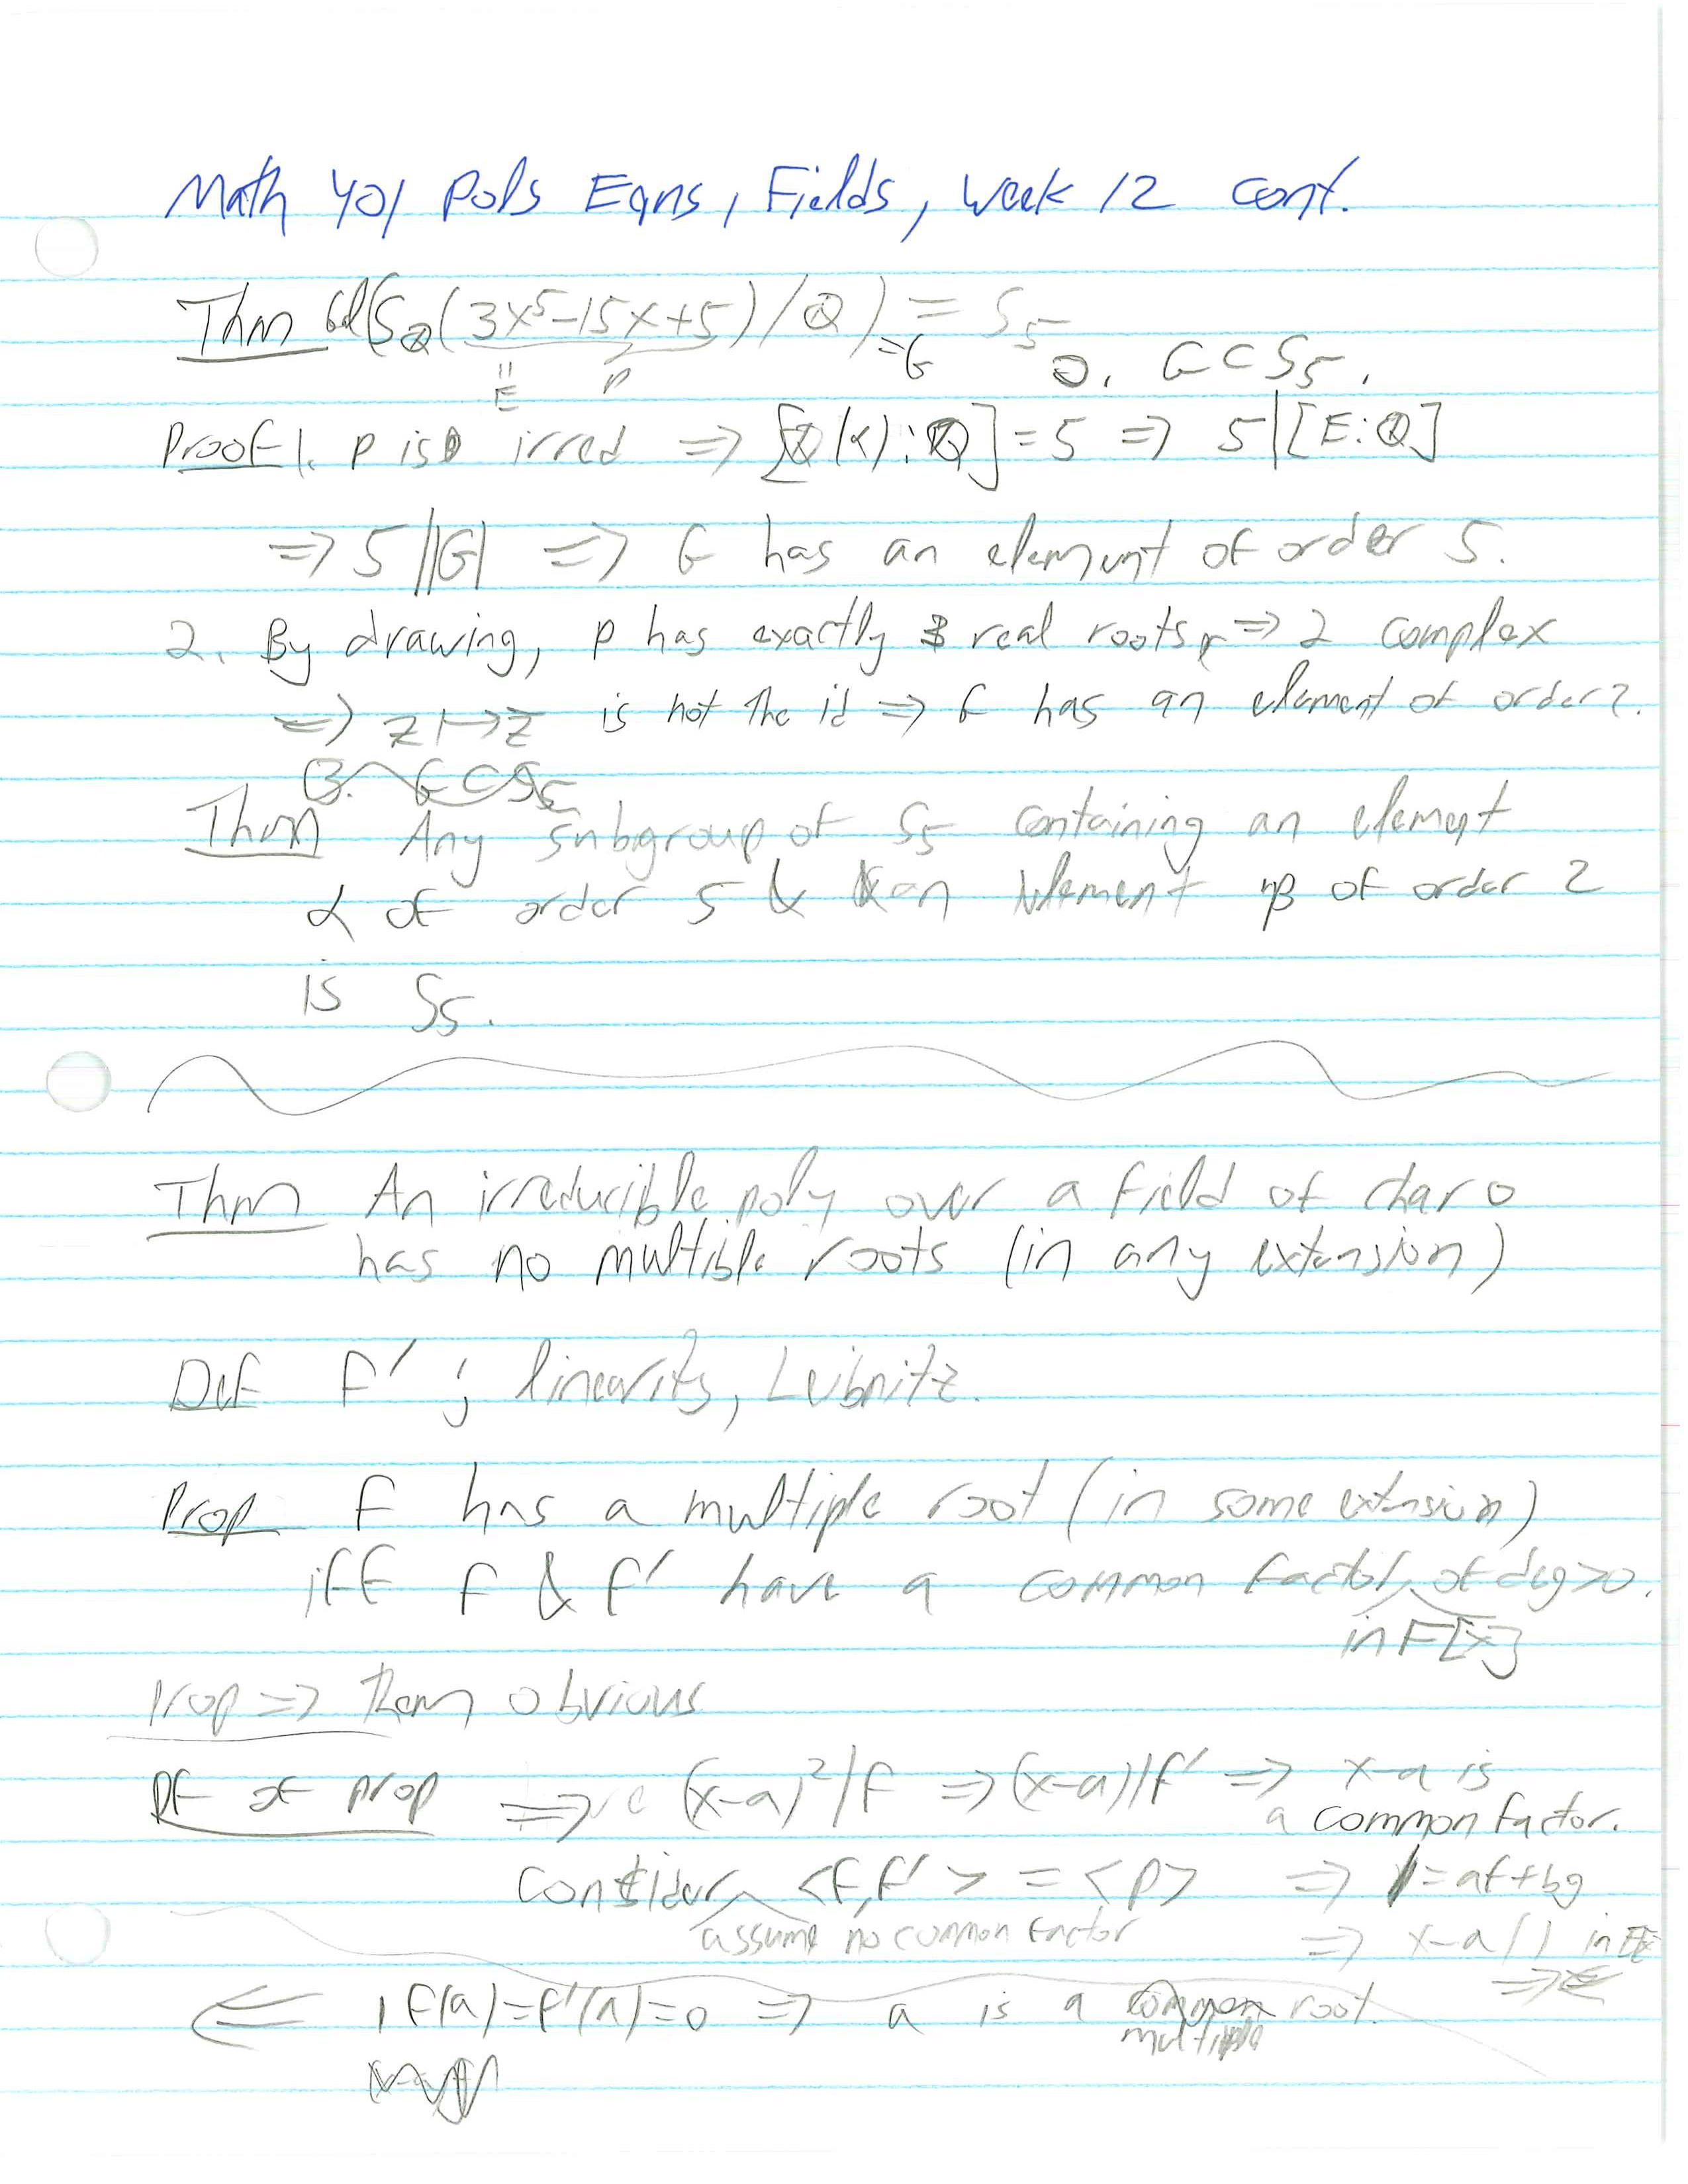 Math 401 Pols Eqns, Fields, Week 12 cont.
Thm Gal(S_Q(3x^5-15x+5)/Q) = S_5
=G
"E p 0. G⊂S_5.
Proof 1. p is irred ⇒ [Q(α):Q]=5 ⇒ 5|[E:Q]
⇒ 5||G| ⇒ G has an element of order 5.
2. By drawing, p has exactly 3 real roots, ⇒ 2 complex
⇒ z↦z̄ is not the id ⇒ G has an element of order 2.
3. G⊂S_5
Thm Any subgroup of S_5 containing an element
α of order 5 & an element β of order 2
is S_5.
Thm An irreducible poly over a field of char 0
has no multiple roots (in any extension)
Def f' ; linearity, Leibnitz.
Prop f has a multiple root (in some extension)
iff f & f' have a common factor of deg>0.
in F[x]
Prop ⇒ Thm obvious
Pf of prop ⇒ (x-a)^2/f ⇒ (x-a)|f' ⇒ x-a is
a common factor.
Consider <f,f'> = <p> ⇒ 1=af+bg
assume no common factor ⇒ x-a|1 in
⇒⇐
⇐ f(a)=f'(a)=0 ⇒ a is a common root.
multiple